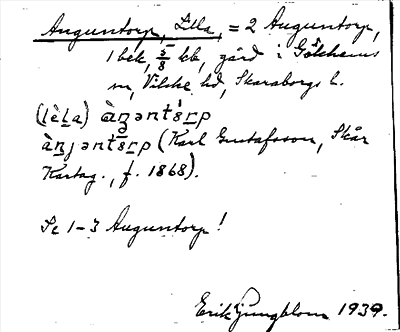 Anguntorp, Lilla, = 2 Anguntorp,
1 bek, 5/8 kb, gård i Gökhems
sn, Vilske hd, Skaraborgs l.
(lèla) àŋəntɵrp
àŋjəntɵrp (Karl Gustafsson, Skår
Kartag., f. 1868).
Se 1-3 Anguntorp!
Erik Ljungblom 1939.